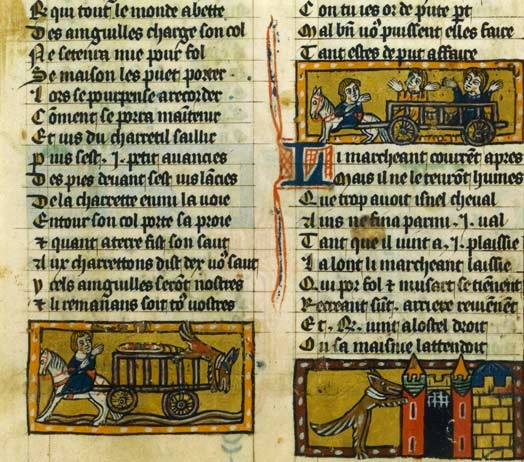 K qui tout le monde abette
Des anguilles charge son col
Ne se tenra mie pour fol
Se maison les puet porter
Lors se pourpense a recorder
Cōment se porra maitenir
Et ius du charretil saillir
Puis sest .i. petit auancies
Des pies deuant sest lācies
De la charrette enmi la uoie
Entour son col porte sa proie
& quant a terre fist son saut
Aux charretons dist dex uo saut
y cels anguilles serōt nostres
& li remanans soit to9 uostres
C on tu ies or de pute pt
Mal bn̄ uo9 puissent elles faire
Tant estes de put affaire
Li marcheant courēt apres
Mais il ne le tenrōt humes
Que trop auoit isnel cheual
Ains ne fina parmi .i. ual
Tant que il uint a .i. plaissie
La lont li marcheant laissie
Qui por fol & musart se tienent
Recreant sūt arriere reuienēt
Et .R. uint a lostel droit
Ou sa maisnie lattendoit